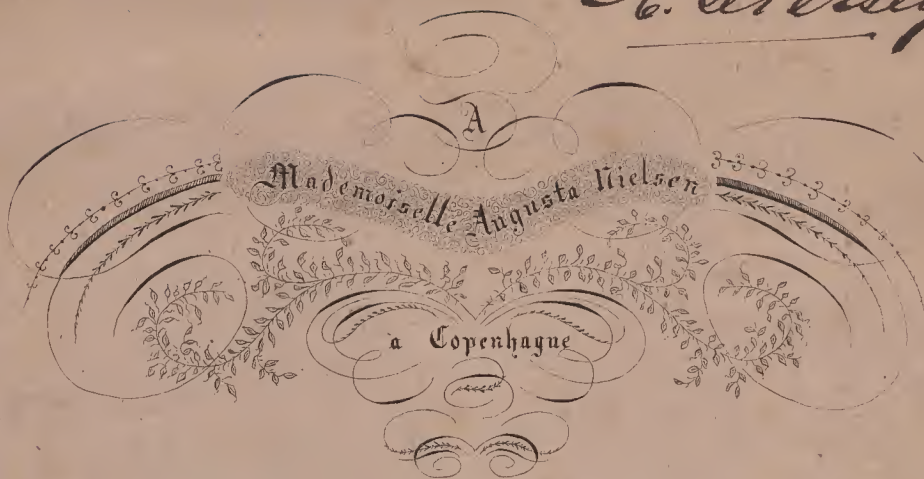 A
Mademoiselle Augusta Nielsen
a Copenhague